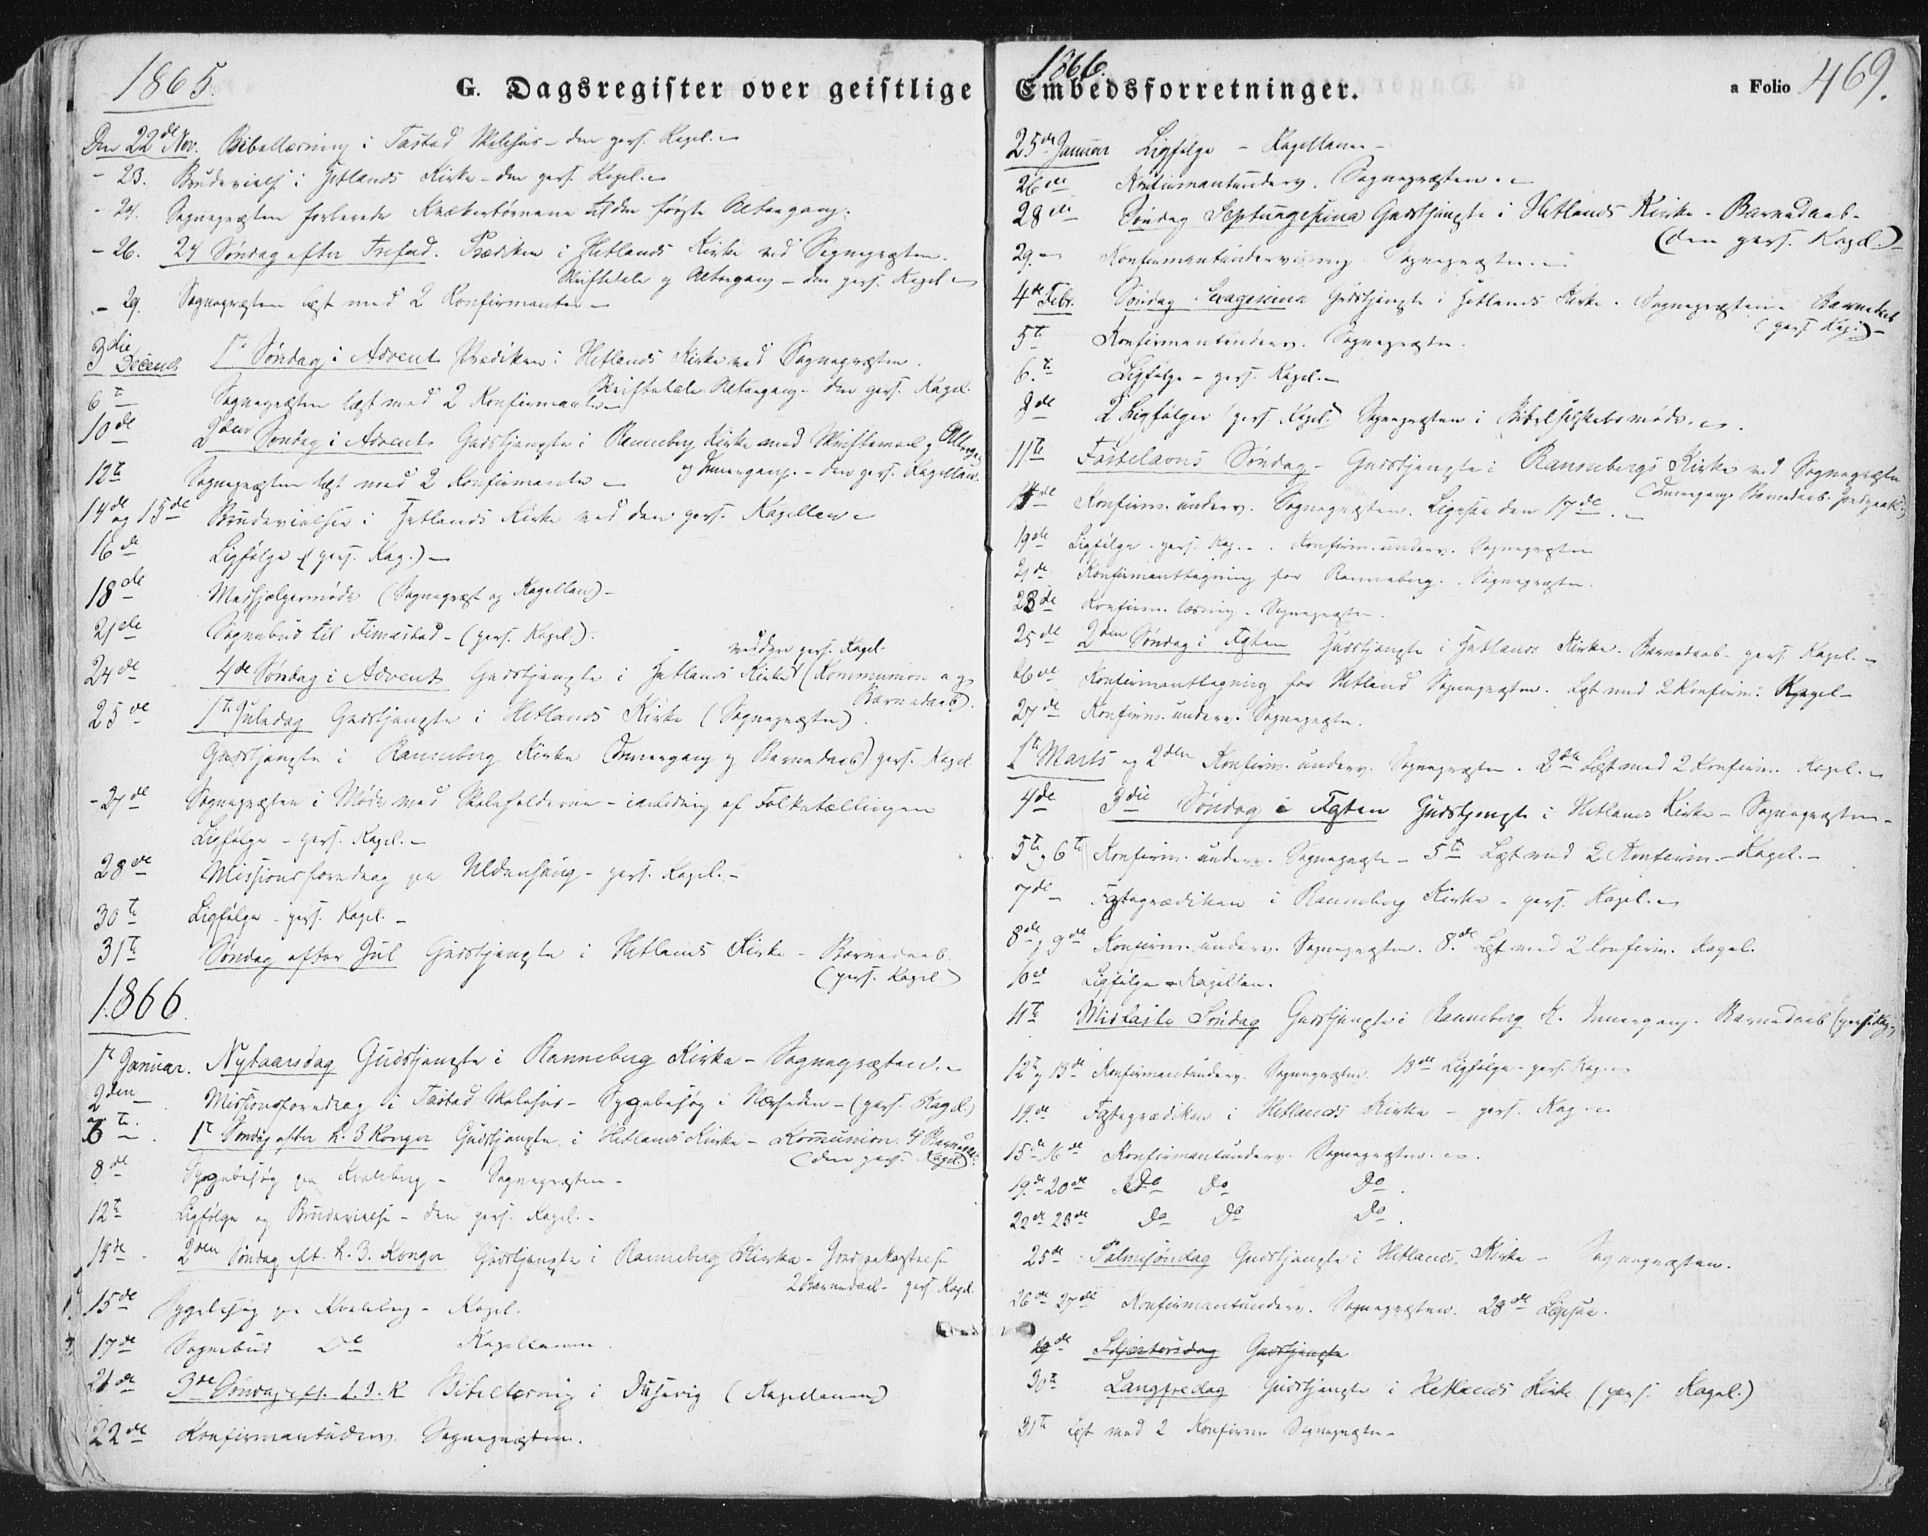 1865.
G. Dagsregister over geistlige
Den 22de Nov. Bibellæsning i Tastad Skolehus - den pers. Kapel.
- 23. Brudevielse i Hetlands Kirke - den pers. Kapel.
- 24. Sognepræsten forberede til den første Altergang.
- 26. 24 Søndag efter Trefold. Prædiken i Hetlands Kirke ved Sognepræsten.
Skriftetale og Altergang - den pers. Kapel
- 29. Sognepræsten læst med 2 Konfirmanter -
3die Decemb. 1te Søndag i Advent Prædiken i Hetlands Kirke ved Sognepræsten.
Skriftetale Altergang - den pers. Kapel.
6te Sognepræsten læst med 2 Konfirmanter -
10de 2den Søndag i Advent Gudstjeneste i Ranneberg Kirke med Skriftemaal og
og - den pers. Kapellan.
12te Sognepræsten læst med 2 Konfirmanter -
14de og 15de Brudevielser i Hetlands Kirke ved den pers. Kapellan -
16de Ligfølge (pers. Kap.) -
18de Medhjælpermøde (Sognepræst og Kapellan) -
21de Sognebud til - (pers. Kapel.).
ved den pers. Kapel.
24de 4de Søndag i Advent Gudstjeneste i Hetlands Kirke (Kommunion og
Barnedaab).
25de 1te Juledag Gudstjeneste i Hetlands Kirke (Sognepræsten).
Gudstjeneste i Ranneberg Kirke og Barnedaab) pers. Kapel
- 27de Sognepræsten i Møde med Skoleholderne - i anledning af Folketællingen
Ligfølge - pers. Kapel. -
28de Missionsforedrag paa - pers. Kapel. -
30te Ligfølge - pers. Kapel. -
31te Søndag efter Jul Gudstjeneste i Hetlands Kirke - Barnedaab.
(pers. Kapel.)
1866.
1te Januar. Nytaarsdag Gudstjeneste i Ranneberg Kirke - Sognepræsten. -
2den Missionsforedrag i Tastad Skolehus - Sygebesøg i Nærheden - (pers. Kapel.)
1te Søndag efter h. 3 Konger Gudstjeneste i Hetlands Kirke - Kommunion.
(den pers. Kapel)
8de Sygebesøg paa Kvaleberg - Sognepræsten -
12te Ligfølge og Brudevielse - den pers. Kapel. -
14de 2den Søndag eft. h. 3. Konger Gudstjeneste i Ranneberg Kirke - Jordpaakastelse
2 Barnedaab - pers. Kapel.
15de Sygebesøg paa Kvaleberg - Kapel.
17de Sognebud Do Kapellanen.
21de 3de Søndag eft. h. 3. K Bibellæsning i Dusevig (Kapellanen)
22de Konfirmantunderv. Sognepræsten.
1866.
Embedsforretninger.
a Folio 469.
25de Januar Ligfølge - Kapellanen -
26de Konfirmantunderv. Sognepræsten. -
28de Søndag Septuagesima Gudstjeneste i Hetlands Kirke - Barnedaab -
(den pers. Kapel.)
29. Konfirmantundervisning Sognepræsten. -
4de Febr. Søndag Sexagesima Gudstjeneste i Hetlands Kirke. Sognepræsten. Barnedaab
(pers. Kap.) -
5te Konfirmantunderv. Sognepræsten.
6te Ligfølge - pers. Kapel. -
2 Ligfølger (pers. Kapel.) Sognepræsten i Bibelselskabsmøde. -
11te Fastelavns Søndag - Gudstjeneste i Rannebergs Kirke ved Sognepræsten
Barnedaab.
Konfirm. underv. Sognepræsten. Ligfølge den 17de. -
19de Ligfølge - pers. Kap. - Konfirm. underv. Sognepræsten
21de Konfirmantlæsning for Ranneberg. Sognepræsten.
23de Konfirm. læsning - Sognepræsten.
25de 2den Søndag i Fasten Gudstjeneste i Hetlands Kirke. Barnedaab - pers. Kapel. -
26de Konfirmantlæsning for Hetland Sognepræsten. Læst med 2 Konfirm: Kapel -
27de Konfirm. underv. Sognepræsten.
1te Marts og 2den Konfirm. underv. Sognepræsten. 2den Læst med 2 Konfirm. Kapel. -
4de 3die Søndag i Fasten Gudstjeneste i Hetlands Kirke - Sognepræsten -
5te og 6te Konfirm. underv. Sognepræsten - 5te Læst med 2 Konfirm. - Kapel. -
7de Fasteprædiken i Ranneberg Kirke - pers. Kapel. -
8de og 9de Konfirm. underv. Sognepræsten. 8.de Læst med 2 Konfirm. Kapel.
10de Ligfølge - Kapellan.
11te Midfaste Søndag Gudstjeneste i Ranneberg K. Barnedaab (pers. Kap.)
12te og 13de Konfirmantunderv. Sognepræsten. 13de Ligfølge - pers. Kap. -
14de Fasteprædiken i Hetlands Kirke - pers. Kap. -
15de 16de Konfirmantunderv. Sognepræsten. -
19.de 20de Do Do Do.
22de 23de Do Do Do.
25de Palmesøndag Gudstjeneste i Hetlands Kirke - Sognepræsten.
26de 27de Konfirmantunderv. Sognepræsten. 28de Ligfølge.
Skjærtorsdag Gudstjeneste
30te Langfredag Gudstjeneste i Hetlands Kirke (pers. Kapel.)
31te Læst med 2 Konfirm. Sognepræsten -